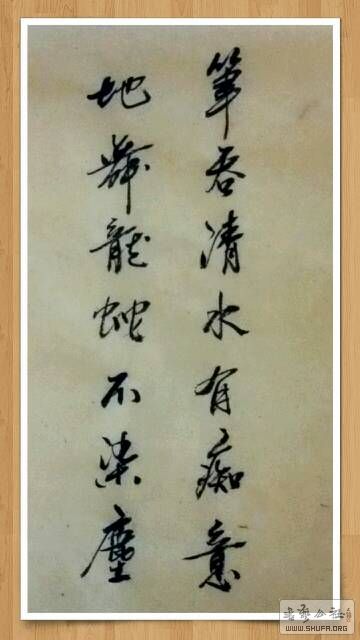 筆吞清水有痴意
地舞龍蛇不染塵
WWW.SHUFA.ORG